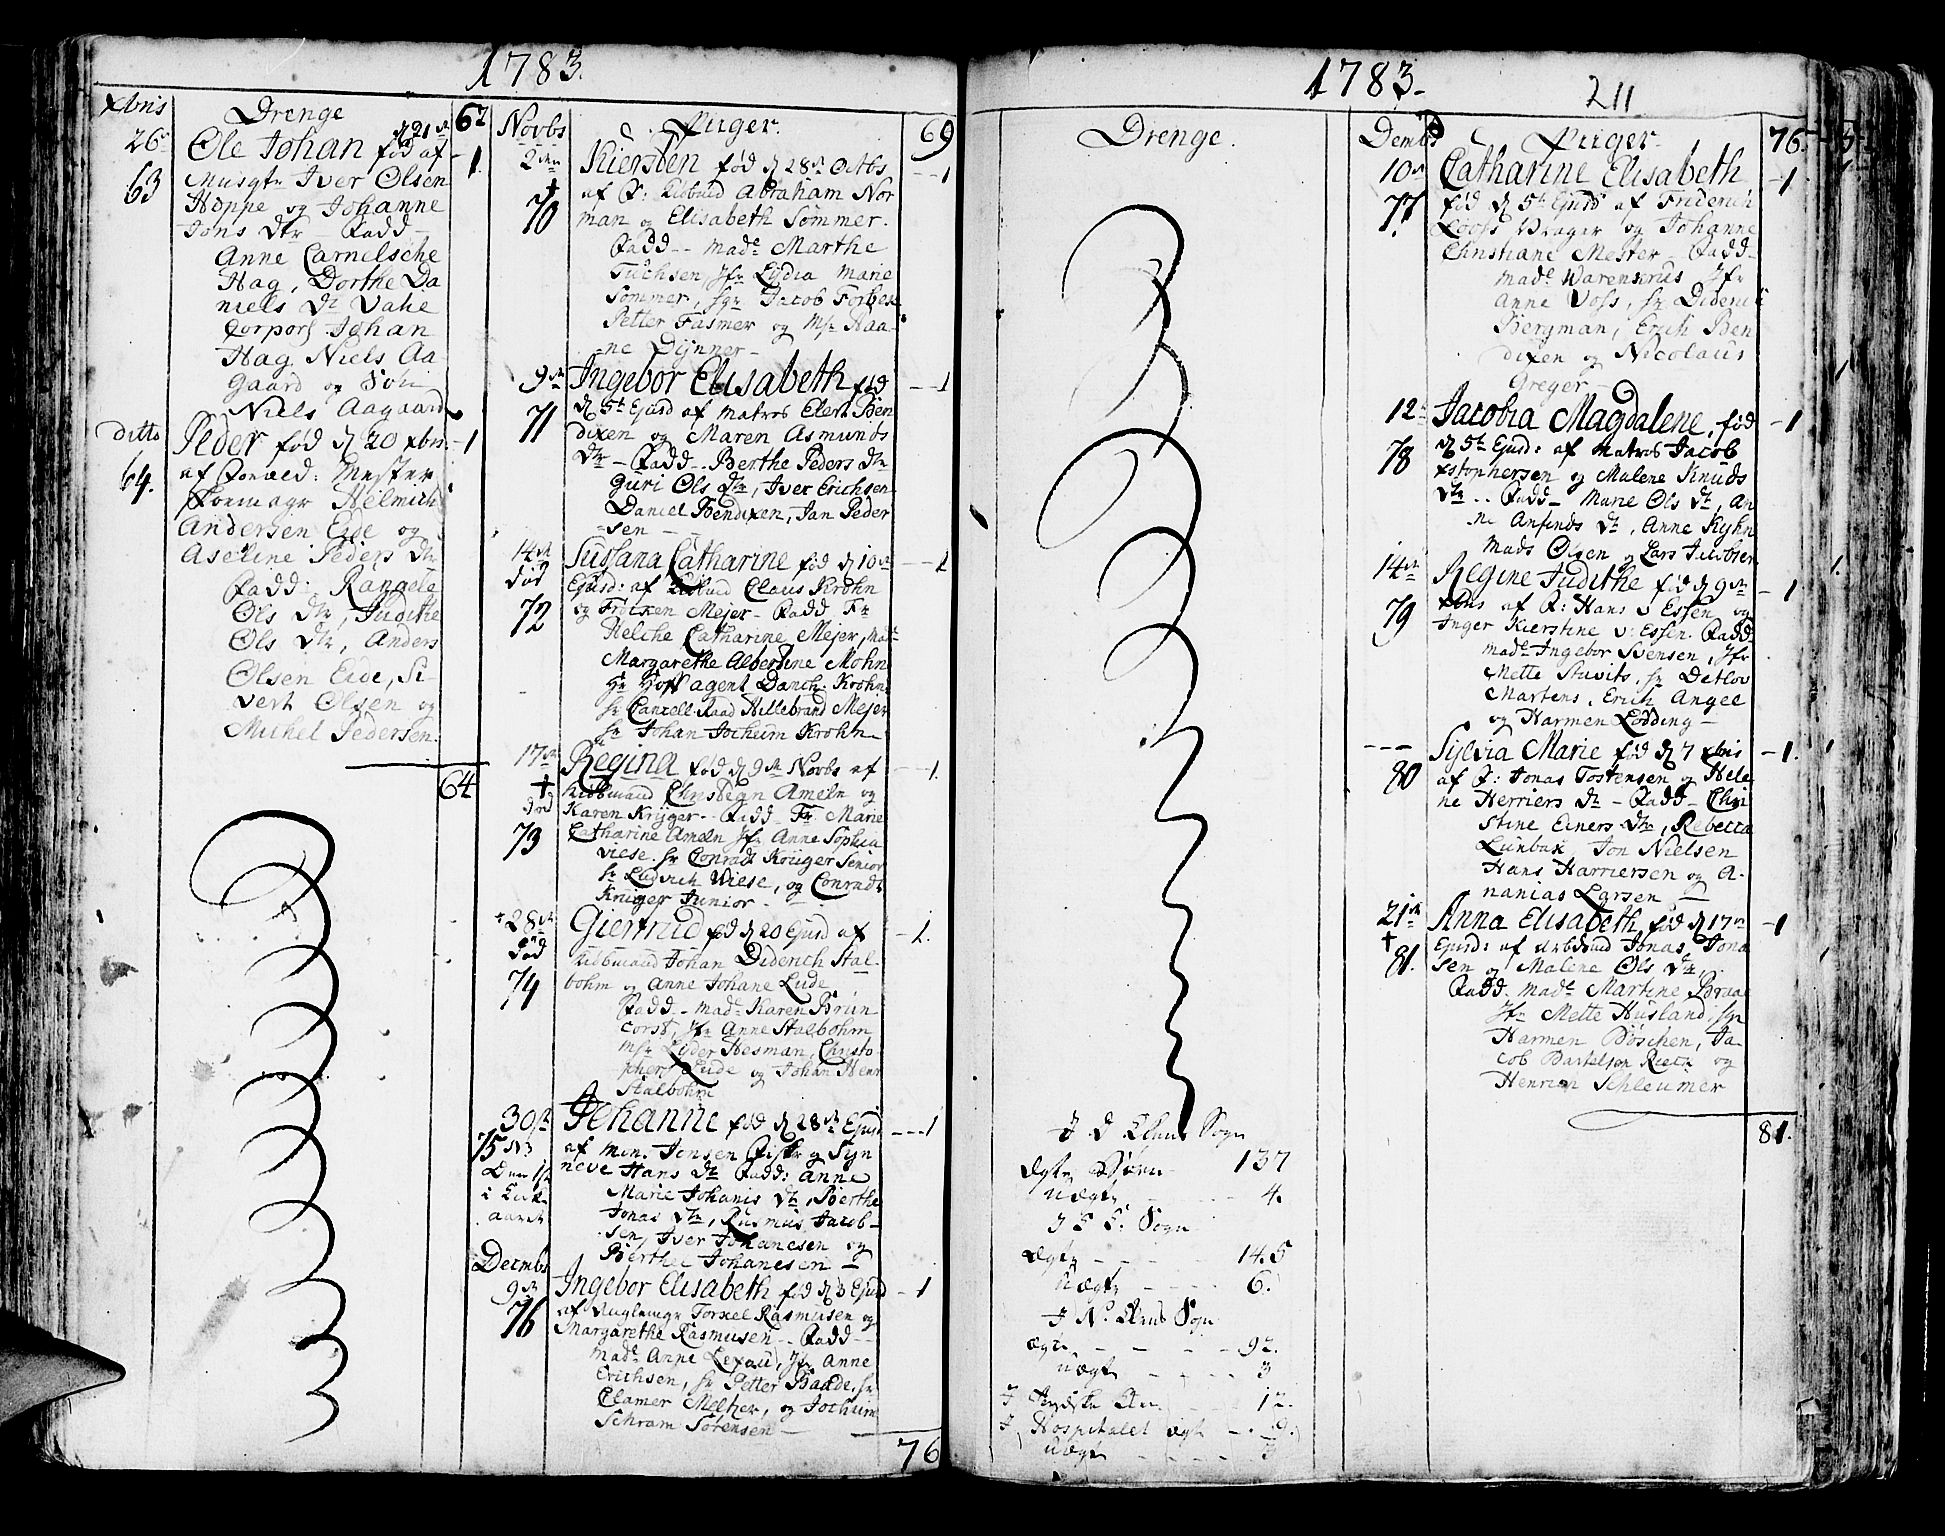 1783.
xbris Drenge 62
26 Ole Johan fød af - 1.
d 21
63 Musqtr Iver Olsen
Hoppe og Johanne
Jons Dtr - Fadd -
Anne Carnelsche
Hag, Dorthe Da
niels Dtr Vahe
Corpors Johan
Hag Niels Aa
gaard og
Niels Aagaard
ditto Peder fød d 20 xbri - 1
64. af
Andersen Eide og
Aseline Peders Dtr
Fadd: Rangele
Ols Dtr, Judithe
Ols Dtr, Anders
Olsen Eide, Si-
vert Olsen og
Michel Pedersen.
64
Novbs Piger. 69
2den Kiersten fød d 28de Octbs - 1
† af F: Abraham Nor
70 man og Elisabeth Sommer.
Fadd - made Marthe
Tuchsen, Jfr Lydia Marie
Sommer, Sgr Jacob Forbes
Petter Fasmer og Msr Haa-
ne Dynner -
9de Ingebor Elisabeth fød - 1
d 5te Ejusd af Matros Elert Ben
71 dixen og Maren Asmunds
Dtr - Fadd - Berthe Peders Dtr
Guri Ols Dtr, Iver Erichsen
Daniel Bendixen, Jan Peder
sen -
14de Susana Catharine fød d 10de - 1
død Ejusd: af Claus Krohn
72 og Mejer - Fadd Fr
Helche Catharine Mejer, made
Margarethe Albertine Mohn
Hr Hoff agent Danch. Krohn
Sr Cancell. Raad Hillebrand Mejer
Sr Johan Jocheim Krohn
17de Regina fød d 9de Novbs af - 1.
† Christian Ameln og
død Karen Krÿger - Fadd - Fr Marie
73 Catharine Ameln Jfr Anne Sophia
Viese. Sr Conradt Krüger Senior
Sr Ludvich Wiese, og Conradt
Krüger Junior -
28de Giertrud fød d 20 Ejusd af - 1.
død Johan Diderich Stal-
74 bohm og Anne Johane Lude
Fadd - made Karen Brun
corst, Jfr Anne Stalbohm
Msr Lyder Hesman, Christo
pher Lude og Johan Henr
Stalbohm
30de Johanne fød d 28de Ejusd - 1
75 af Jensen og Syn
neve Hans Dtr Fadd: Anne
Marie Johanis Dtr, Berthe
Jonas Dtr, Rasmus Jacob-
sen, Iver Johanesen og
Berthe Johanesen -
Decmbs
9de Ingebor Elisabeth fød d 3 Ejusd - 1
76 af Torkel Rasmusen og
Margarethe Rasmusen - Fadd -
made Anne Lexau, Jfr Anne
Erichsen, Sr Petter Baade, Sr
Clamer Melher, og Jochum
Schram Sørensen -
76
1783.
211
Drenge.
J D Sogn
Ægte Børn 137
Uægte 4.
Sogn
Ægte 145
Uægte 6.
J N. Sogn
Ægte 92.
Uægte 3
J Tydske 12.
J Hospitalet ægt 9.
Uægt 3
Dembs Piger. 76.
10 Catharine Elisabeth - 1
77 fød d 5te Ejusd af Friderich
og Johanne
Christiane Mester - Fadd -
made Jfr
Anne Voss, Sr Diderich
Bergman, Erich Ben
dixen og Nicolaus
Greger -
12 Jacobia Magdalene, fød - 1
d 5te Ejusd: af Matros Jacob
78 xstophersen og Malene Knuds
Dtr - Fadd - Marie Ols Dtr, An
ne Anfinds Dtr, Anne Kyhn
Mads Olsen og Lars Jacobsen
14de Regine Judithe fød d 9de - 1
xbris af F: Hans v Essen og
79 Inger Kierstine v: Essen. Fadd
made Ingebor Svensen, Jfr
Mette Stuvits, Sr Detlov
Martens, Erich Angel
og Harmen Lödding -
- - - Sylvia Marie fød d 7 xbris - 1.
80 af F: Jonas Tostensen og Hele
ne Herriers Dtr - Fadd - Chri
stine Einers Dtr, Rebecca
Lunban, Jon Nielsen
Hans Harriersen og A-
nanias Larsen -
21de Anna Elisabeth fød d 17de - 1
† Ejusd: af Jonas Jona
81. sen og Malene Ols Dtr.
Fadd. made Martine
Jfr Mette Husland, Sgr
Harmen Böschen, Ja-
cob og
Henrich Schleumer
81.